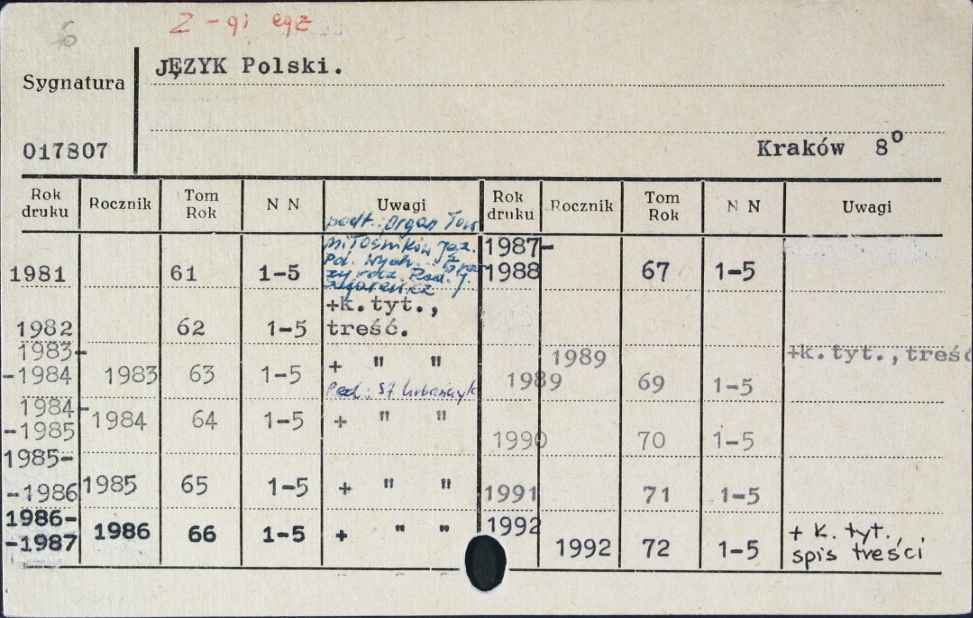 6 2-gi egz
JĘZYK Polski.
Sygnatura
017807 Kraków 8°
Rok druku Rocznik Tom Rok N N Uwagi Rok druku Rocznik Tom Rok N N Uwagi
podt.: Organ Tow.
miłośników jęz.
1981 61 1-5
1987-1988 67 1-5
+k.tyt.,
1982 62 1-5 treść.
1983-
-1984 1983 63 1-5 + " "
Red.: St. Urbańczyk
1989 +k.tyt.,treść
1989 69 1-5
1984-
-1985 1984 64 1-5 + " "
1990 70 1-5
1985-
-1986 1985 65 1-5 + " "
1991 71 1-5
1986-
-1987 1986 66 1-5 + " "
1992
1992 72 1-5 + k. tyt.,
spis treści